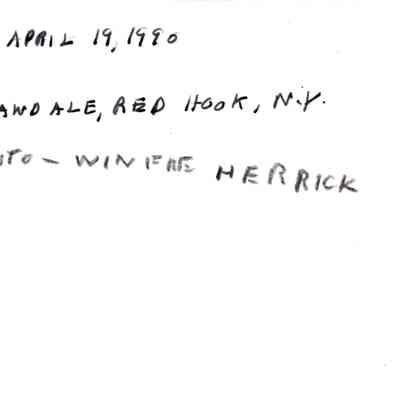 APRIL 19, 1990
AWDALE, RED HOOK, N.Y.
OTO - WINIFRE HERRICK